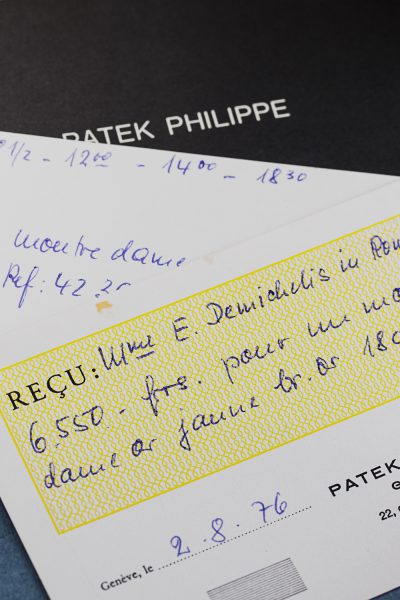 PATEK PHILIPPE
1/2 - 12⁰⁰ - 14⁰⁰ - 18³⁰
montre dame
Réf: 42
REÇU: Mme E. Demichelis in
6.550 - frs. pour un
dame or jaune br. or
Genève, le 2.8.76
PATEK
22,